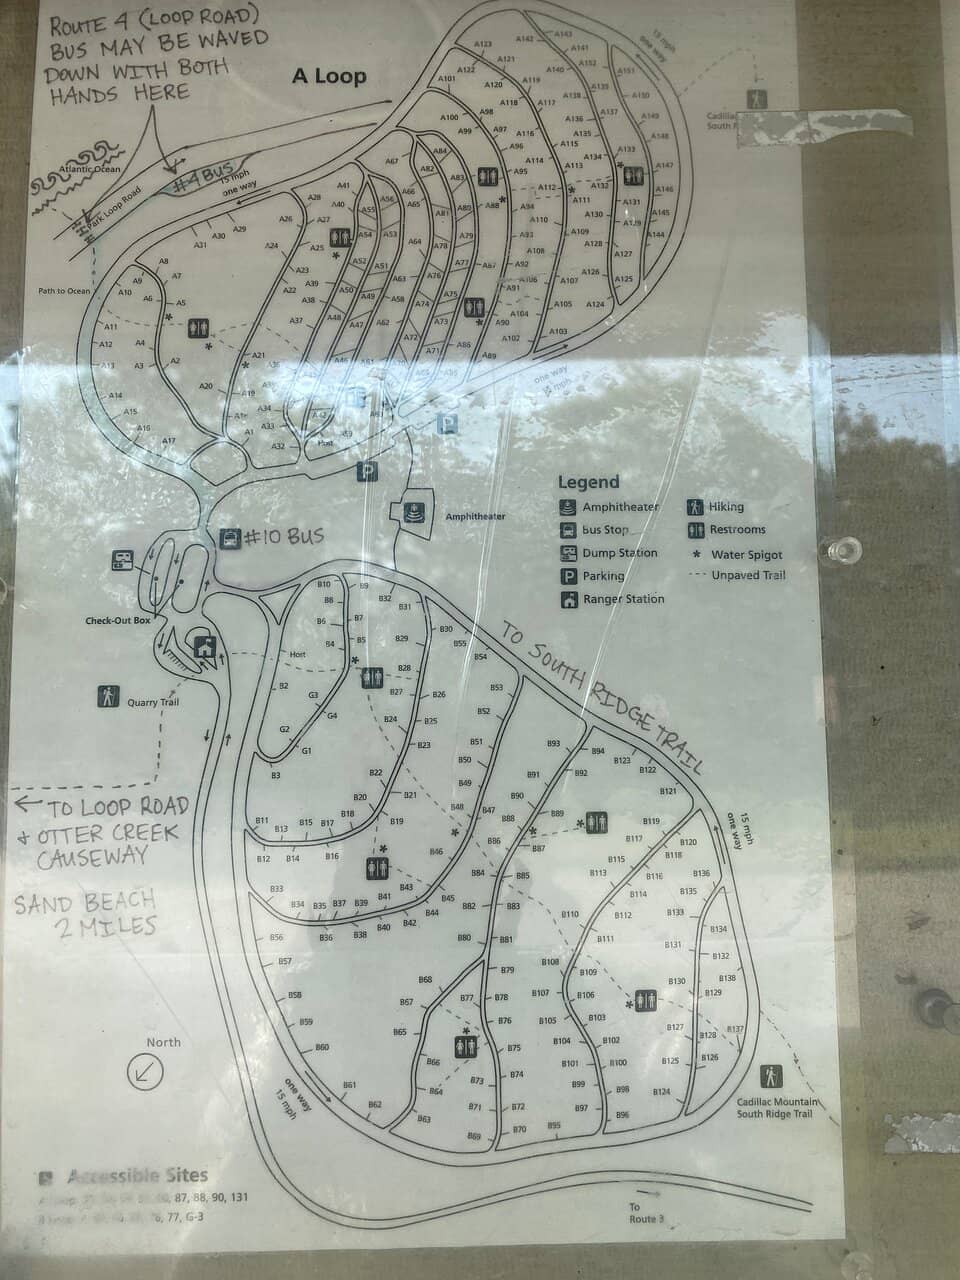 ROUTE 4 (LOOP ROAD)
BUS MAY BE WAVED
DOWN WITH BOTH
HANDS HERE
A Loop
15 mph
one way
Cadillac
South R
Atlantic Ocean
#4 BUS
15 mph
one way
Park Loop Road
Path to Ocean
A123
A142
A143
A121
A141
A122
A140
A152
A151
A101
A120
A119
A139
A150
A118
A117
A138
A100
A98
A137
A149
A136
A99
A97
A116
A135
A148
A96
A115
A133
A84
A114
A113
A134
A147
A67
A82
A83
A95
A112
A132
A146
A41
A66
A111
A131
A28
A40
A55
A56
A65
A81
A80
A88
A94
A110
A130
A129
A145
A26
A27
A54
A53
A79
A93
A109
A128
A144
A31
A30
A29
A24
A25
A64
A78
A108
A127
A8
A23
A52
A51
A77
A87
A92
A126
A125
A9
A7
A39
A63
A76
A106
A107
A10
A6
A5
A22
A38
A50
A49
A58
A74
A75
A91
A105
A124
A11
A37
A48
A47
A62
A73
A90
A104
A103
A12
A4
A72
A86
A102
A13
A3
A2
A21
A71
A89
one way
15 mph
A14
A20
A19
A15
A34
A16
A33
A17
A1
A32
Host
Amphitheater
#10 BUS
Check-Out Box
Quarry Trail
Legend
Amphitheater
Hiking
Bus Stop
Restrooms
Dump Station
Water Spigot
Parking
Unpaved Trail
Ranger Station
TO SOUTH RIDGE TRAIL
B10
B9
B8
B32
B31
B6
B7
B30
B4
B5
B29
B55
Host
B54
B28
B2
G3
B27
B26
B53
G4
B24
B25
B52
G2
G1
B23
B51
B93
B94
B3
B50
B123
B22
B91
B92
B122
B21
B49
B90
B121
B20
B48
B47
B89
B11
B15
B17
B18
B19
B88
B119
B13
B86
B87
B117
B120
B12
B14
B16
B46
B115
B118
B84
B85
B113
B116
B136
B33
B43
B114
B135
B34
B35
B37
B39
B41
B45
B82
B83
B110
B112
B133
B36
B38
B40
B42
B44
B134
B56
B80
B81
B111
B131
B132
B57
B68
B79
B108
B109
B130
B138
B58
B67
B77
B78
B107
B106
B129
B59
B65
B76
B105
B103
B127
B128
B137
B60
B66
B75
B104
B102
B125
B126
B101
B100
B61
B64
B73
B74
B99
B98
B124
B62
B63
B71
B72
B97
B96
B69
B70
B95
15 mph
one way
← TO LOOP ROAD
+ OTTER CREEK
CAUSEWAY
SAND BEACH
2 MILES
North
one way
15 mph
Cadillac Mountain
South Ridge Trail
To
Route 3
Accessible Sites
87, 88, 90, 131
77, G-3